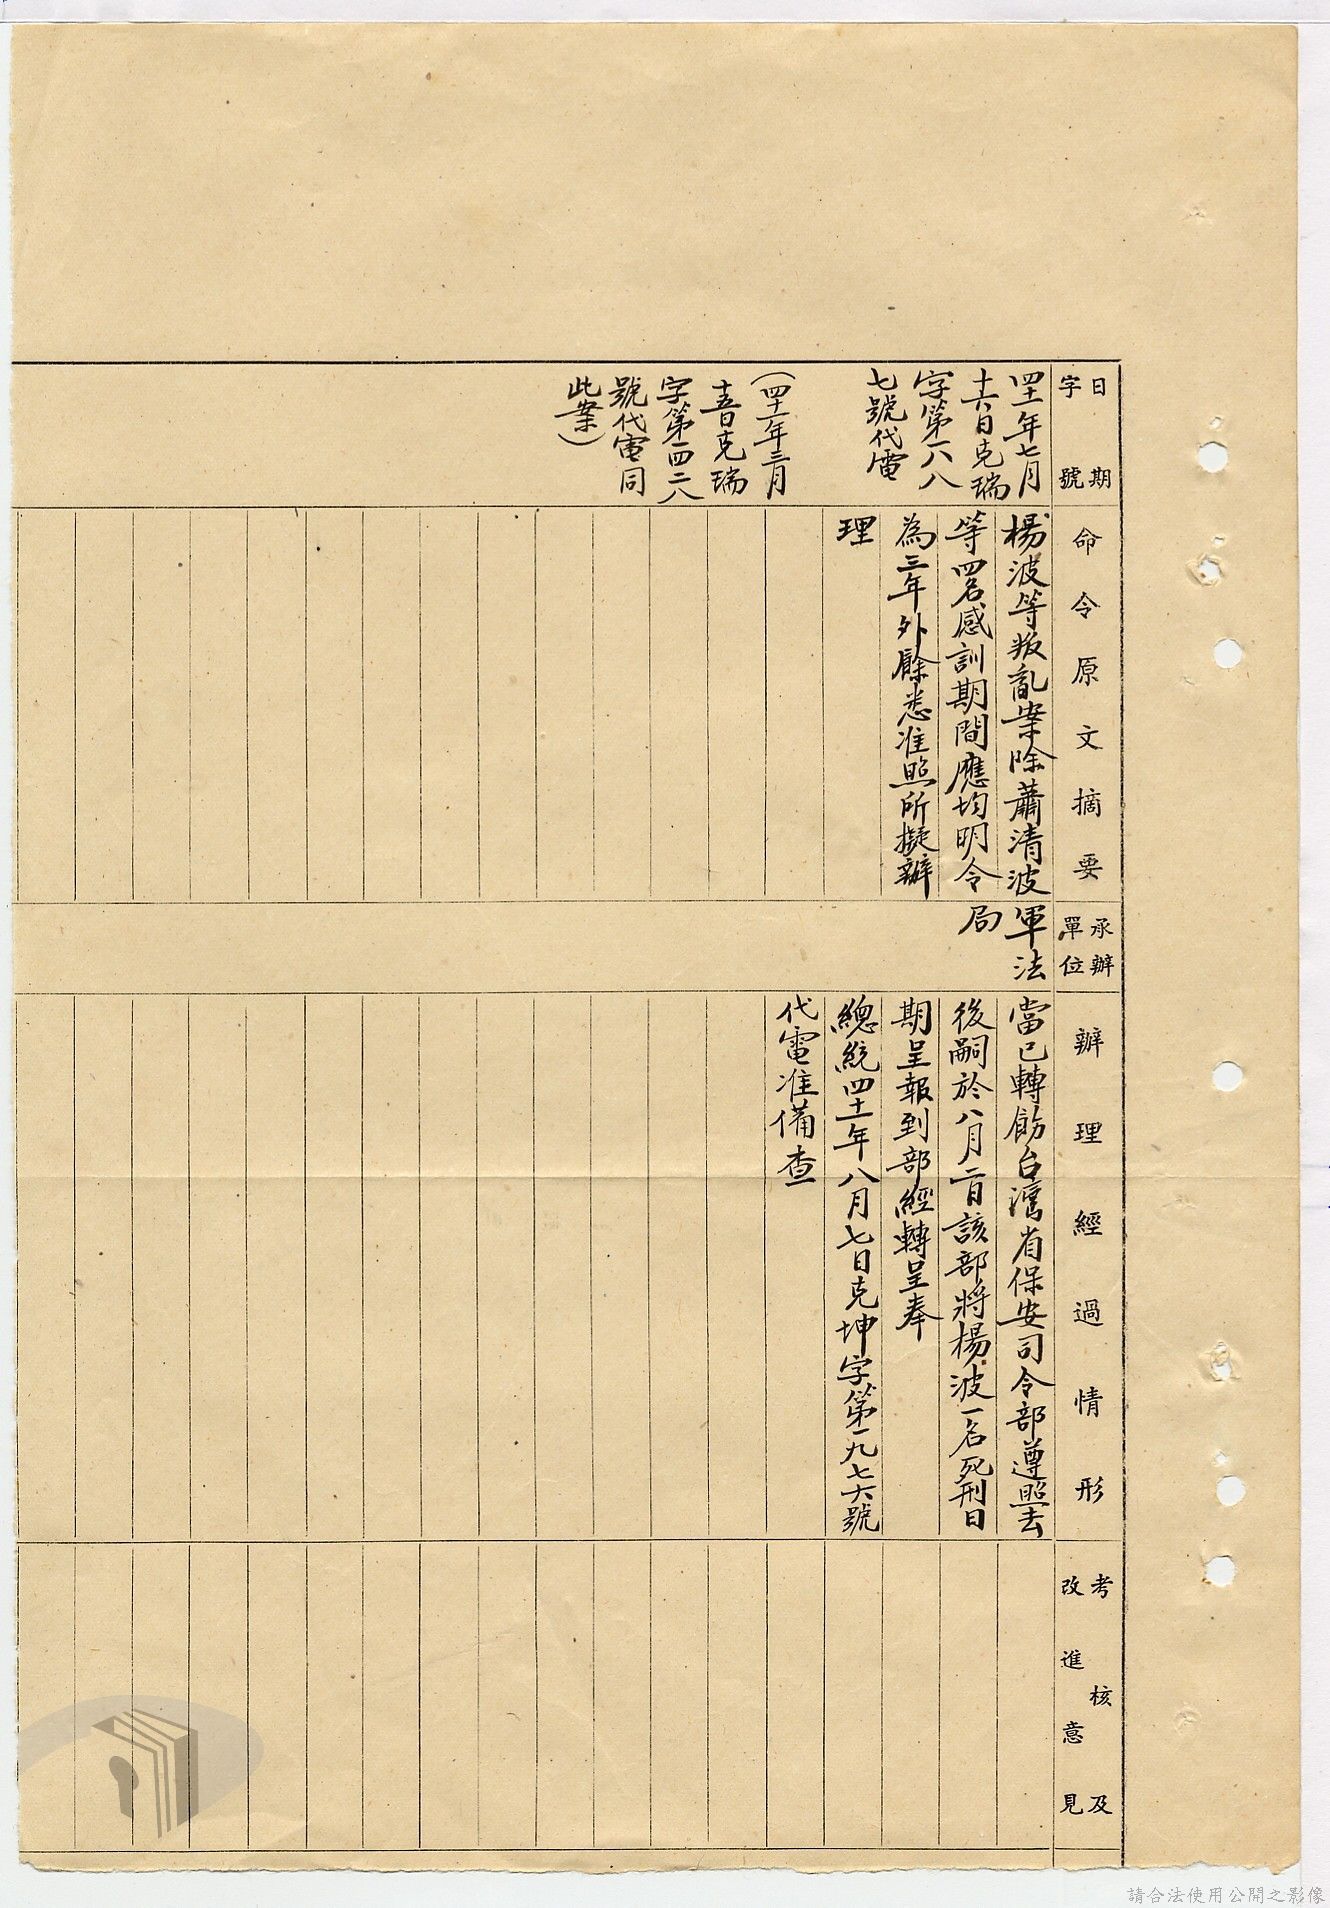 日期
字號
四十一年七月
十六日克瑞
字第一八八
七號代電
（四十一年三月
十五日克瑞
字第一四二八
號代電同
此案）
命令原文摘要
楊波等叛亂案除蕭清波
等四名感訓期間應均明令
為三年外餘悉准照所擬辦
理
承辦
單位
軍法
局
辦理經過情形
當已轉飭台灣省保安司令部遵照去
後嗣於八月二日該部將楊波一名死刑日
期呈報到部經轉呈奉
總統四十一年八月七日克坤字第一九七六號
代電准備查
考核及
改進意見
請合法使用公開之影像